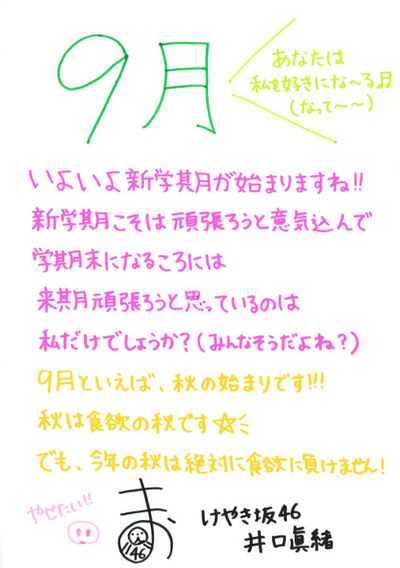 9月
あなたは
私を好きにな〜る♫
(なって〜〜)
いよいよ新学期が始まりますね!!
新学期こそは頑張ろうと意気込んで
学期末になるころには
来期頑張ろうと思っているのは
私だけでしょうか?(みんなそうだよね?)
9月といえば、秋の始まりです!!!
秋は食欲の秋です☆
でも、今年の秋は絶対に食欲に負けません!
やせたい!!
けやき坂46
井口眞緒
46